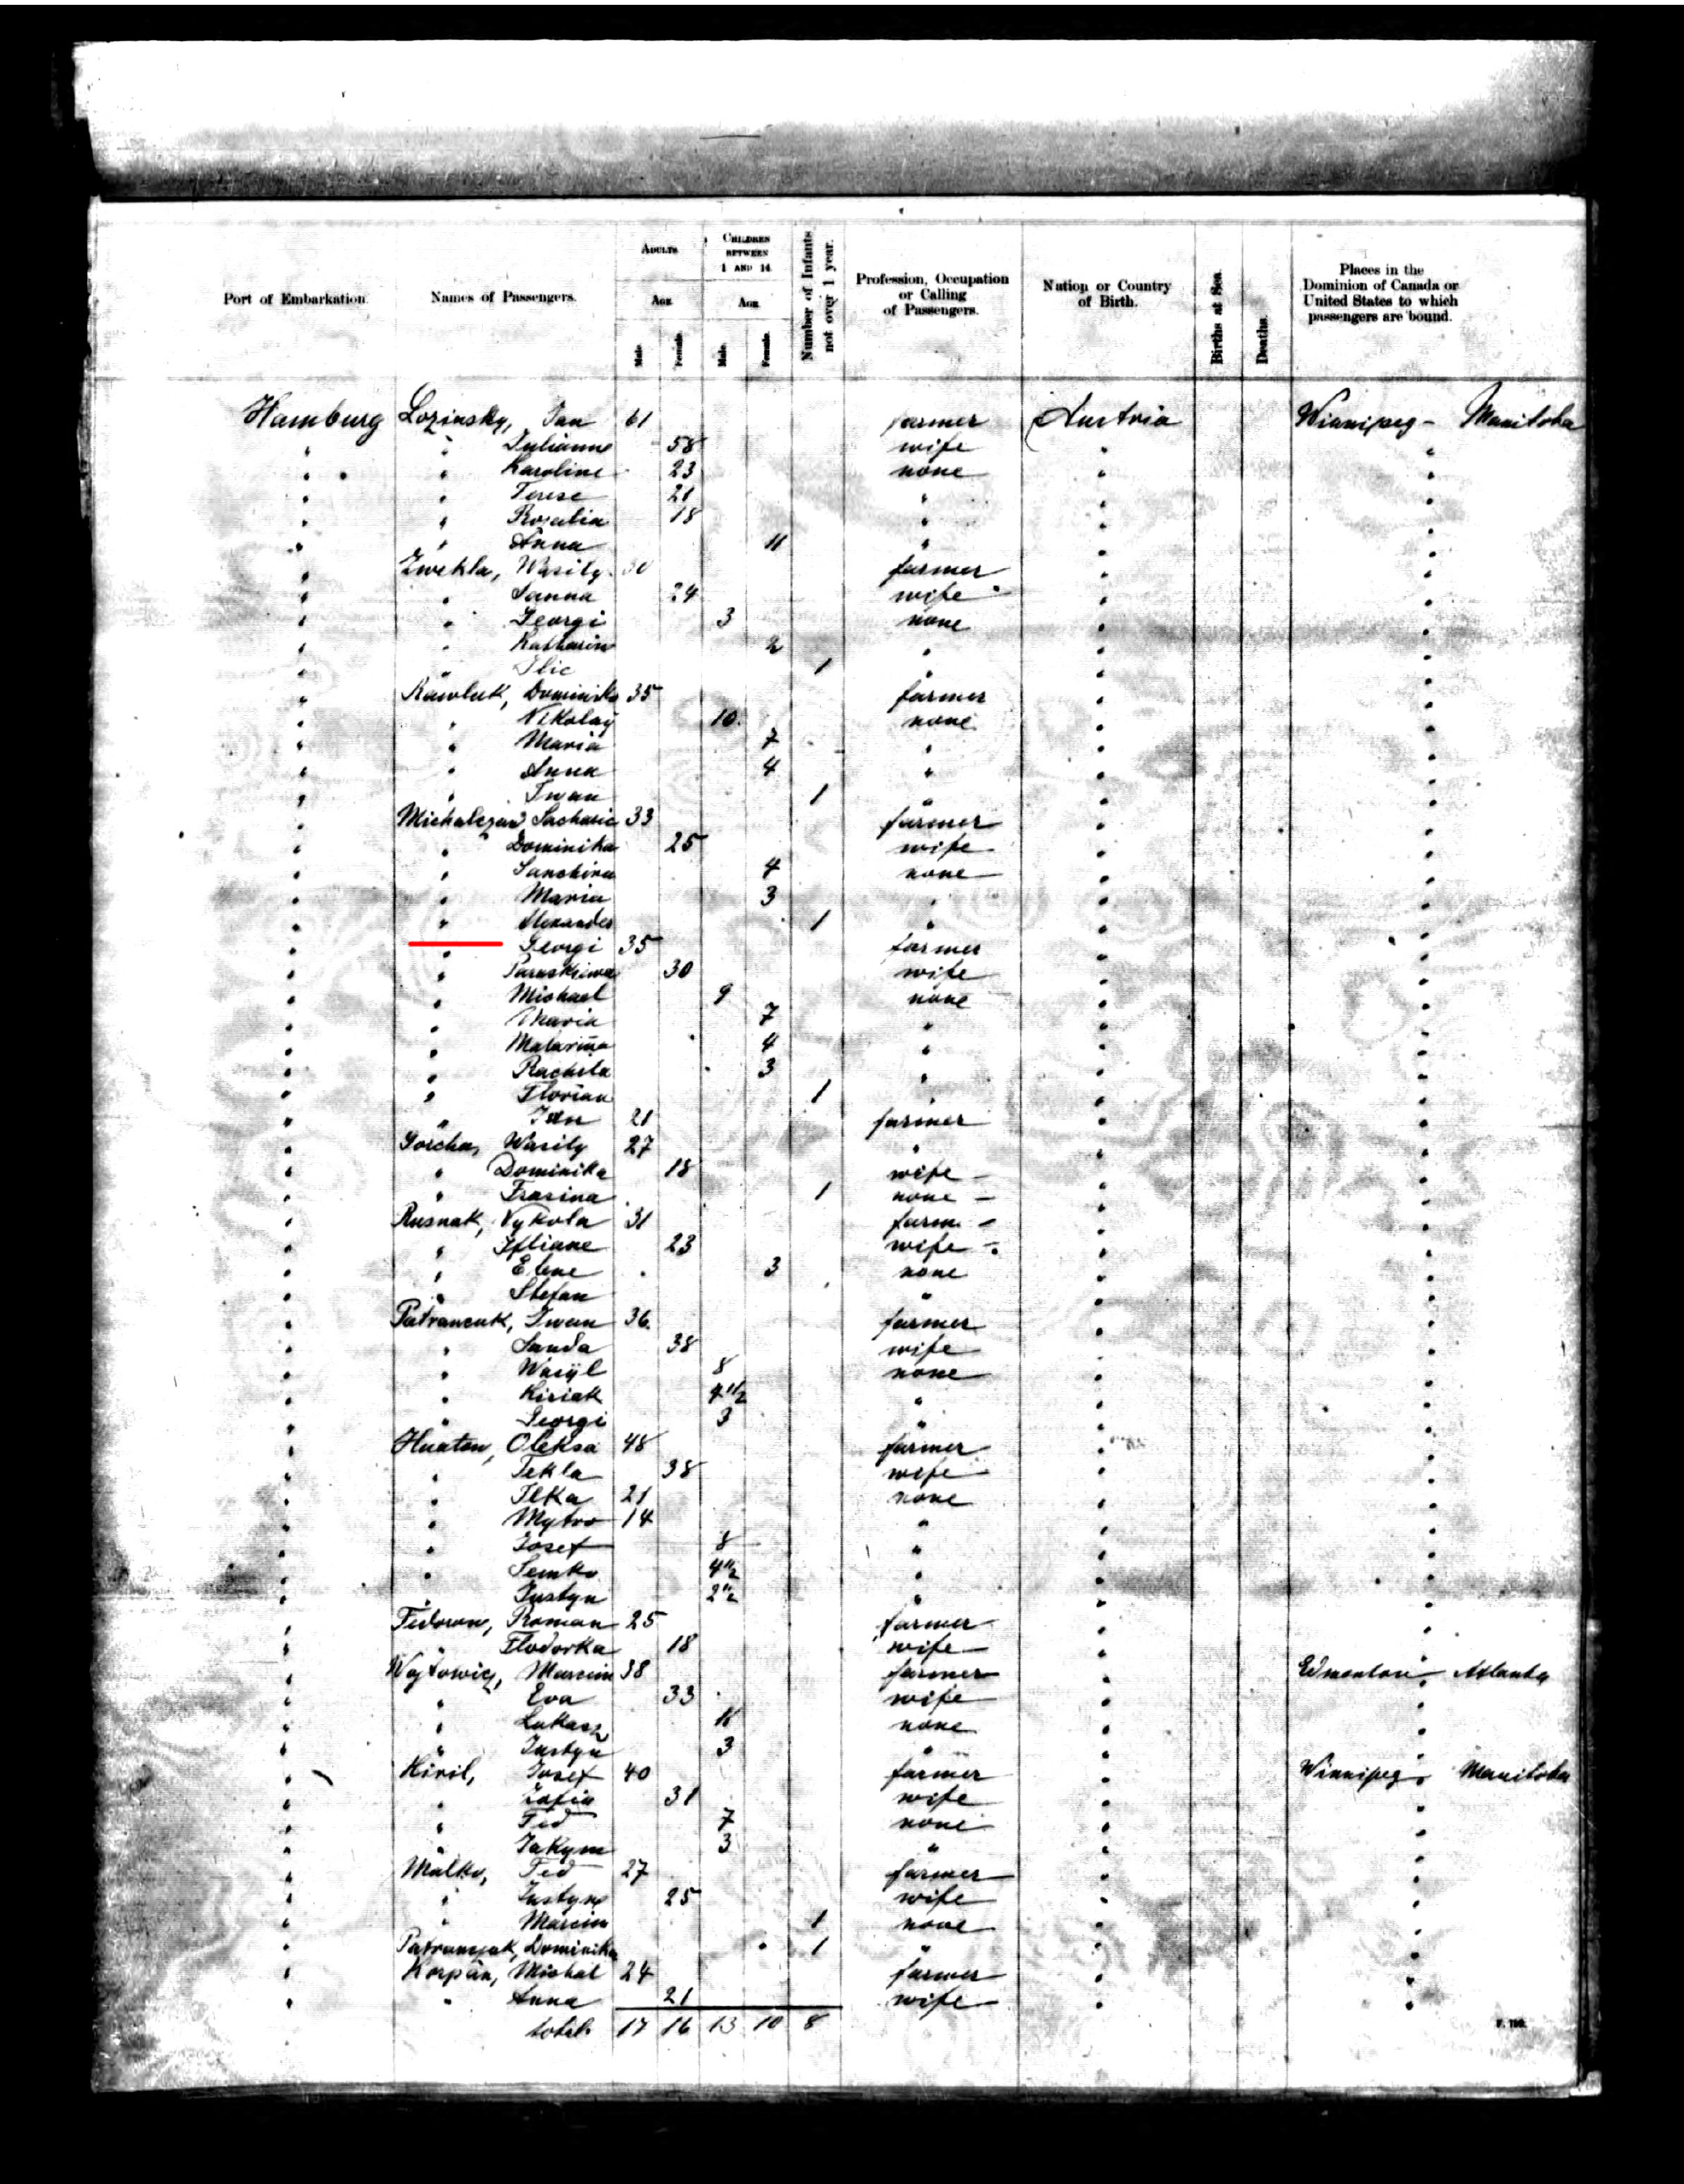 Port of Embarkation. Names of Passengers. Adults Age Male. Female. Children between 1 and 14 Age. Male. Female. Number of Infants not over 1 year. Profession, Occupation or Calling of Passengers. Nation or Country of Birth. Births at Sea. Deaths. Places in the Dominion of Canada or United States to which passengers are bound.
Hamburg Lozinsky, Jan 61 farmer Austria Winnipeg - Manitoba
" " Julianne 58 wife " "
" " Karoline 23 none " "
" " Terese 21 " " "
" " Rosalia 18 " " "
" " Anna 11 " " "
" Zwekla, Wasily 30 farmer " "
" " Sanna 24 wife " "
" " Georgi 3 none " "
" " Katharin 2 " " "
" " Ilie 1 " " "
" Rawluk, Dominika 35 farmer " "
" " Nikolaj 10 none " "
" " Maria 7 " " "
" " Anna 4 " " "
" " Iwan 1 " " "
" Sacharie 33 farmer " "
" " Dominika 25 wife " "
" " Sanchira 4 none " "
" " Maria 3 " " "
" " Alexander 1 " " "
" " Georgi 35 farmer " "
" " Paraskiwa 30 wife " "
" " Michael 9 none " "
" " Maria 7 " " "
" " 4 " " "
" " Rachila 3 " " "
" " Florian 1 " " "
" " Jan 21 farmer " "
" Gorcha, Wasily 27 " " "
" " Dominika 18 wife - " "
" " Frasina 1 none - " "
" Rusnak, Nykola 31 farm. - " "
" " Ifliane 23 wife - " "
" " Elene 3 none " "
" " Stefan " " "
" Patrancuk, Iwan 36 farmer " "
" " Sanda 38 wife " "
" " Wasyl 8 none " "
" " Kiriak 4 1/2 " " "
" " Georgi 3 " " "
" Huatow, Oleksa 48 farmer " "
" " Tekla 38 wife " "
" " Ilka 21 none " "
" " Mytro 14 " " "
" " Josef 8 " " "
" " Semko 4 1/2 " " "
" " Justyn 2 1/2 " " "
" Fedorow, Roman 25 farmer " "
" " Flodorka 18 wife " "
" Wojtowicz, Marcin 38 farmer " Edmonton
" " Eva 33 wife " "
" " Lukasz 11 none " "
" " Justyn 3 " " "
" Kiril, Josef 40 farmer " Winnipeg Manitoba
" " Zofia 31 wife " "
" " Fed 7 none " "
" " Jakym 3 " " "
" Malko, Fed 27 farmer " "
" " Justyna 25 wife " "
" " Marcin 1 none " "
" Dominika 1 " " "
" Korpan, Michal 24 farmer " "
" " Anna 21 wife " "
total 17 16 13 10 8